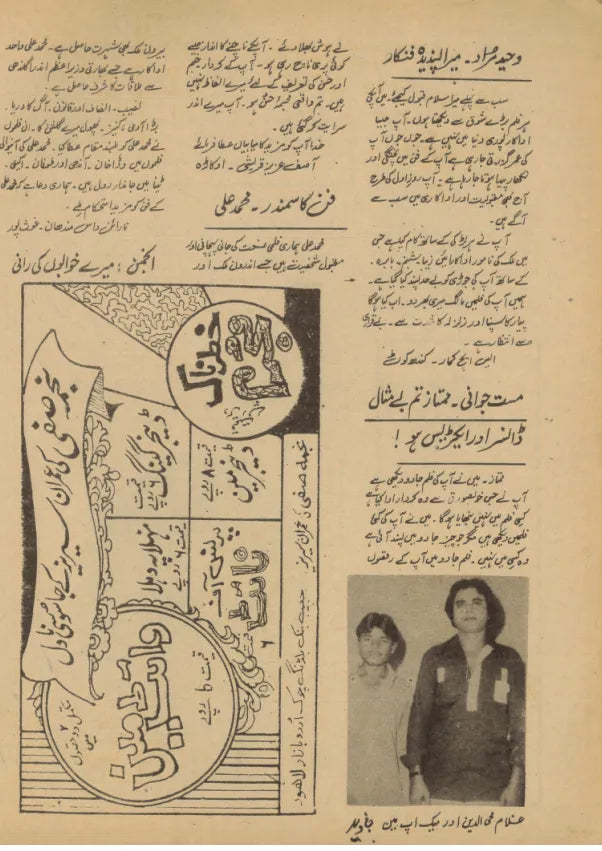 وحید مراد ۔ میرا پسندیدہ فنکار
سب سے پہلے میرا سلام قبول کیجئے میں آپکی
ہر فلم بڑے شوق سے دیکھتا ہوں ۔ آپ جیسا
اداکار پوری دنیا میں نہیں ہے ۔ جوں جوں آپ
کی عمر گزرتی جا رہی ہے آپ کے فن میں پختگی اور
نکھار پیدا ہوتا جا رہا ہے ۔ آپ روز اول کی طرح
آج بھی مقبولیت اور اداکاری میں سب سے
آگے ہیں ۔
آپ نے ہر لڑکی کے ساتھ کام کیا ہے جس
میں ملک کی نامور اداکارائیں زیبا، شبنم ۔ بابرہ ۔
کے ساتھ آپ کی جوڑی کو بے حد پسند کیا گیا ہے ۔
ہمیں آپ کی فلمیں مانگ میری بھر دو ۔ اب کیا ہوگا
پیار کا سپنا اور زلزلہ کا شدت سے بے قراری
سے انتظار ہے ۔
ایس ایچ کمار ۔ کندھ کوٹ
مست جوانی ۔ ممتاز تم بے مثال
ڈانسر اور ایکٹریس ہو !
ممتاز ۔ میں نے آپ کی فلم جادو دیکھی ہے
آپ نے جس خوبصورتی سے وہ کردار ادا کیا ہے
کسی فلم میں نہیں نبھایا ہوگا ۔ میں نے آپ کی کئی
فلمیں دیکھی ہیں مگر جو چیز جادو میں پسند آئی ہے
وہ کسی میں نہیں ۔ فلم جادو میں آپ کے رقصوں
غلام محی الدین اور میک اپ مین جاوید
نے ہوش بھلا دئے ۔ آپکے ناچنے کا انداز جیسے
کوئی پری ناچ رہی ہو ۔ آپ کے کردار جسم
اور حسن کی تعریف کے لئے میرے الفاظ نہیں
ہیں ۔ تم واقعی مجسمۂ حسن ہو ۔ آپ میرے اندر
سرایت کر گئی ہیں ۔
خدا آپ کو مزید کامیابیاں عطا فرمائے
آصف عزیز قریشی ۔ اوکاڑہ
فن کا سمندر ۔ محمد علی
محمد علی ہماری فلمی صنعت کی جانی پہچانی اور
مقبول شخصیت ہیں جسے اندرون ملک اور
بیرون ملک بھی شہرت حاصل ہے ۔ محمد علی واحد
اداکار ہے جسے بھارتی وزیر اعظم اندرا گاندھی
سے ملاقات کا شرف حاصل ہے ۔
نصیب ۔ انصاف اور قانون ۔ آگ کا دریا ۔
بڑا آدمی ، کنیز ۔ پھول میرے گلشن کا ۔ ان فلموں
نے محمد علی کو بلند مقام عطا کیا ۔ محمد علی کی آنیوالی
فلموں میں وڈا خان ۔ آندھی اور طوفان ۔
ٹیپا ہیں جاندار رول ہیں ۔ ہماری دعا ہے کہ محمد علی
کے فن کو مزید استحکام ملے ۔
نارائن داس مندھان ۔ غوث پور
انجمن ؛ میرے خوابوں کی رانی
نجمہ صفی کی عمران سیریز کے جاسوسی ناول
خطرناک مجرم
ڈینجر مین
قیمت ۸ روپے
ڈینجر گینگ
قیمت
پرنس آف
قیمت ۶
نہلا پہ دہلا
قیمت ۶ روپے
وائٹ مین
قیمت ۶ روپے
مکمل دو حصوں میں
نجمہ صفی کی عمران سیریز
حبیب بنک بلڈنگ چوک اردو بازار لاہور